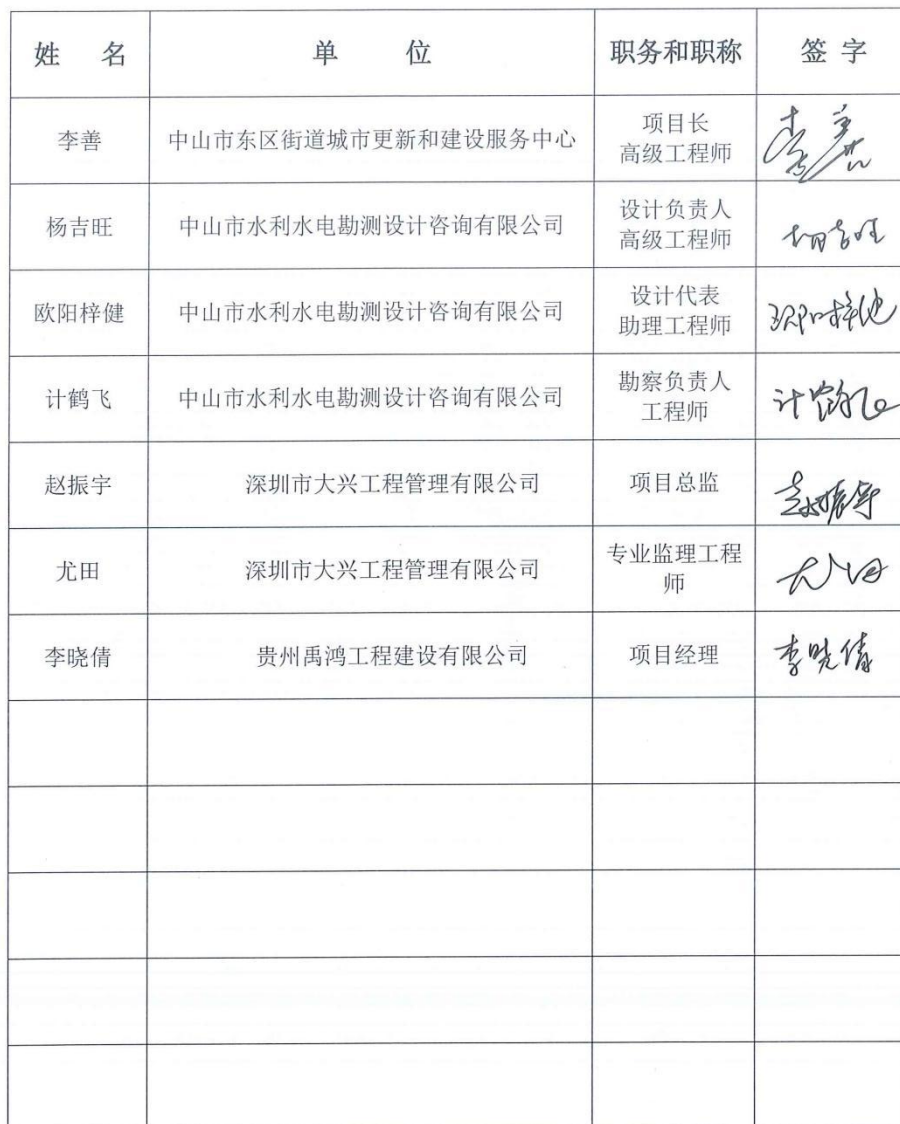 姓 名 单 位 职务和职称 签 字
李善 中山市东区街道城市更新和建设服务中心 项目长
高级工程师 李善
杨吉旺 中山市水利水电勘测设计咨询有限公司 设计负责人
高级工程师 杨吉旺
欧阳梓健 中山市水利水电勘测设计咨询有限公司 设计代表
助理工程师 欧阳梓健
计鹤飞 中山市水利水电勘测设计咨询有限公司 勘察负责人
工程师 计鹤飞
赵振宇 深圳市大兴工程管理有限公司 项目总监 赵振宇
尤田 深圳市大兴工程管理有限公司 专业监理工程
师 尤田
李晓倩 贵州禹鸿工程建设有限公司 项目经理 李晓倩